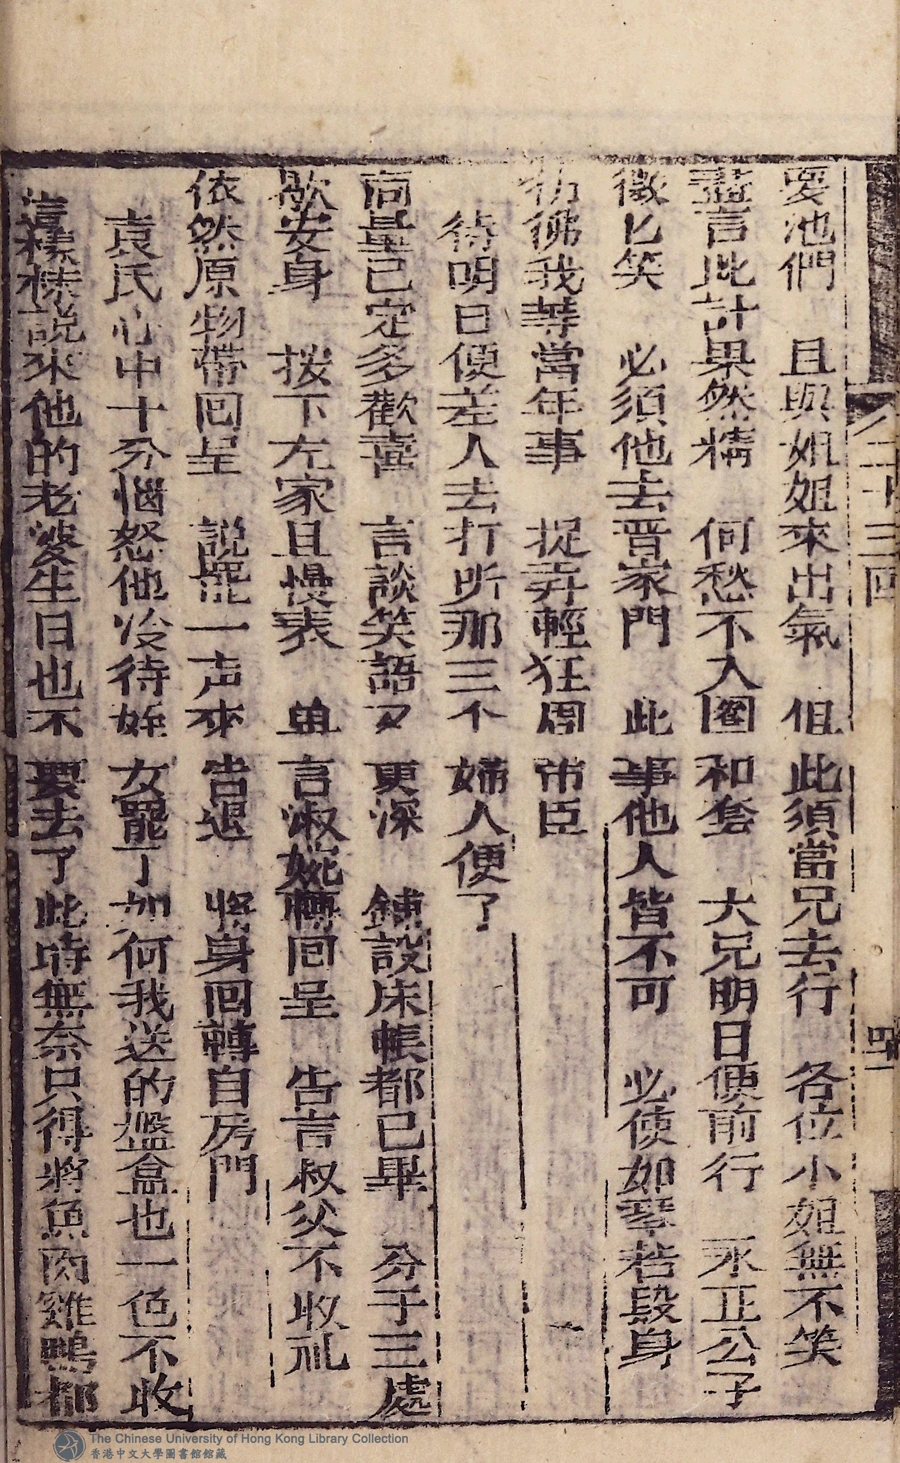 二十三回
四
要池們　且與姐姐來出氣　但此須當兄去行　各位小姐無不笑
盡言此計果然精　何愁不入圈和套　大兄明日便前行　永正公子
微匕笑　必須他去晋家門　此事他人皆不可　必使如琴若段身
彷彿我等當年事　捉弄輕狂周帝臣
待明日便差人去打听那三个婦人便了
商量已定多歡喜　言談笑語又更深　鋪設床帳都已畢　分于三處
歇安身　按下左家且慢表　単言淑婉轉回呈　告言叔父不收礼
依然原物帶回呈　說罷一声來告退　將身回轉自房門
袁氏心中十分惱怒他冷待姪女罷了如何我送的盤盒也一色不收
這樣樣說來他的老婆生日也不要去了此時無奈只得將魚肉雞鴨都
The Chinese University of Hong Kong Library Collection
香港中文大學圖書館館藏